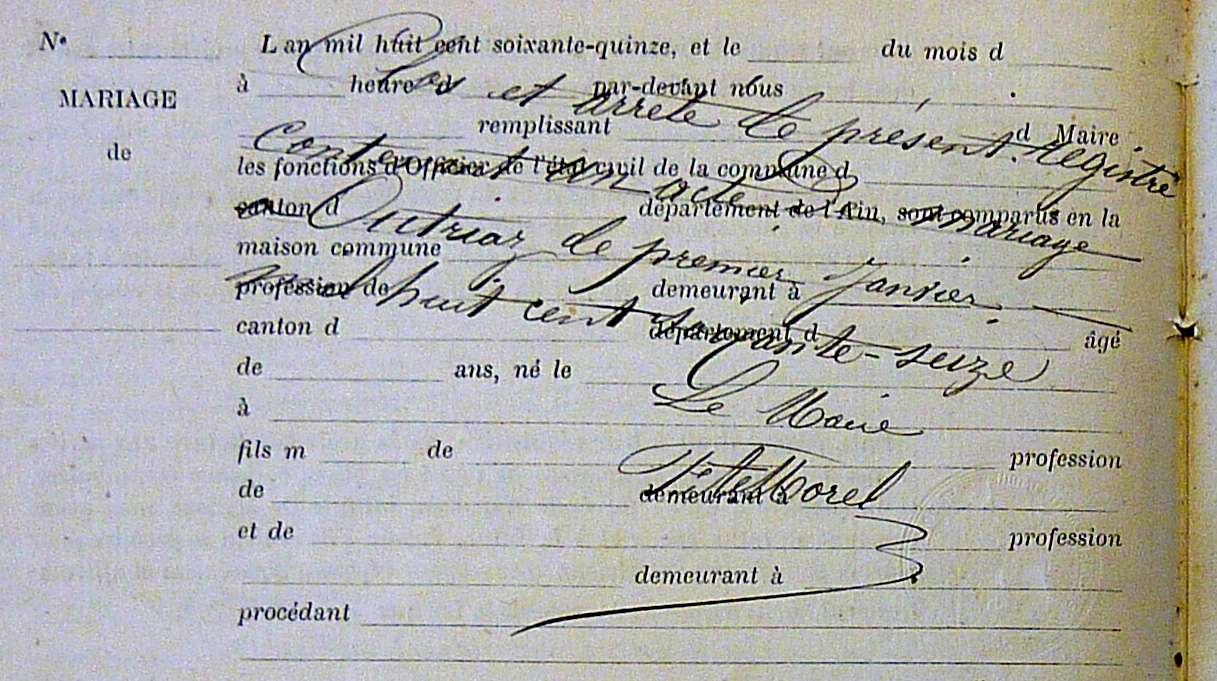 N° L'an mil huit cent soixante-quinze, et le du mois d
MARIAGE
de
à heure d par-devant nous
Clos et arrêté le présent registre
remplissant d Maire
contenant un acte de mariage
les fonctions d'Officier de l'état civil de la commune d
canton d département de l'Ain, sont comparus en la
Outriaz le premier Janvier
maison commune
mil huit cent soixante-seize
profession de demeurant à
canton d département d âgé
de ans, né le
Le Maire
à
fils m de profession
Morel
de demeurant à
et de profession
demeurant à
procédant